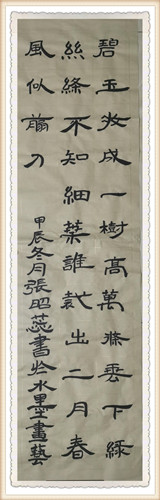 碧玉妝成一樹高萬條垂下綠
絲絛不知細葉誰裁出二月春
風似剪刀
甲辰冬月張昭蕊書於水墨畫藝